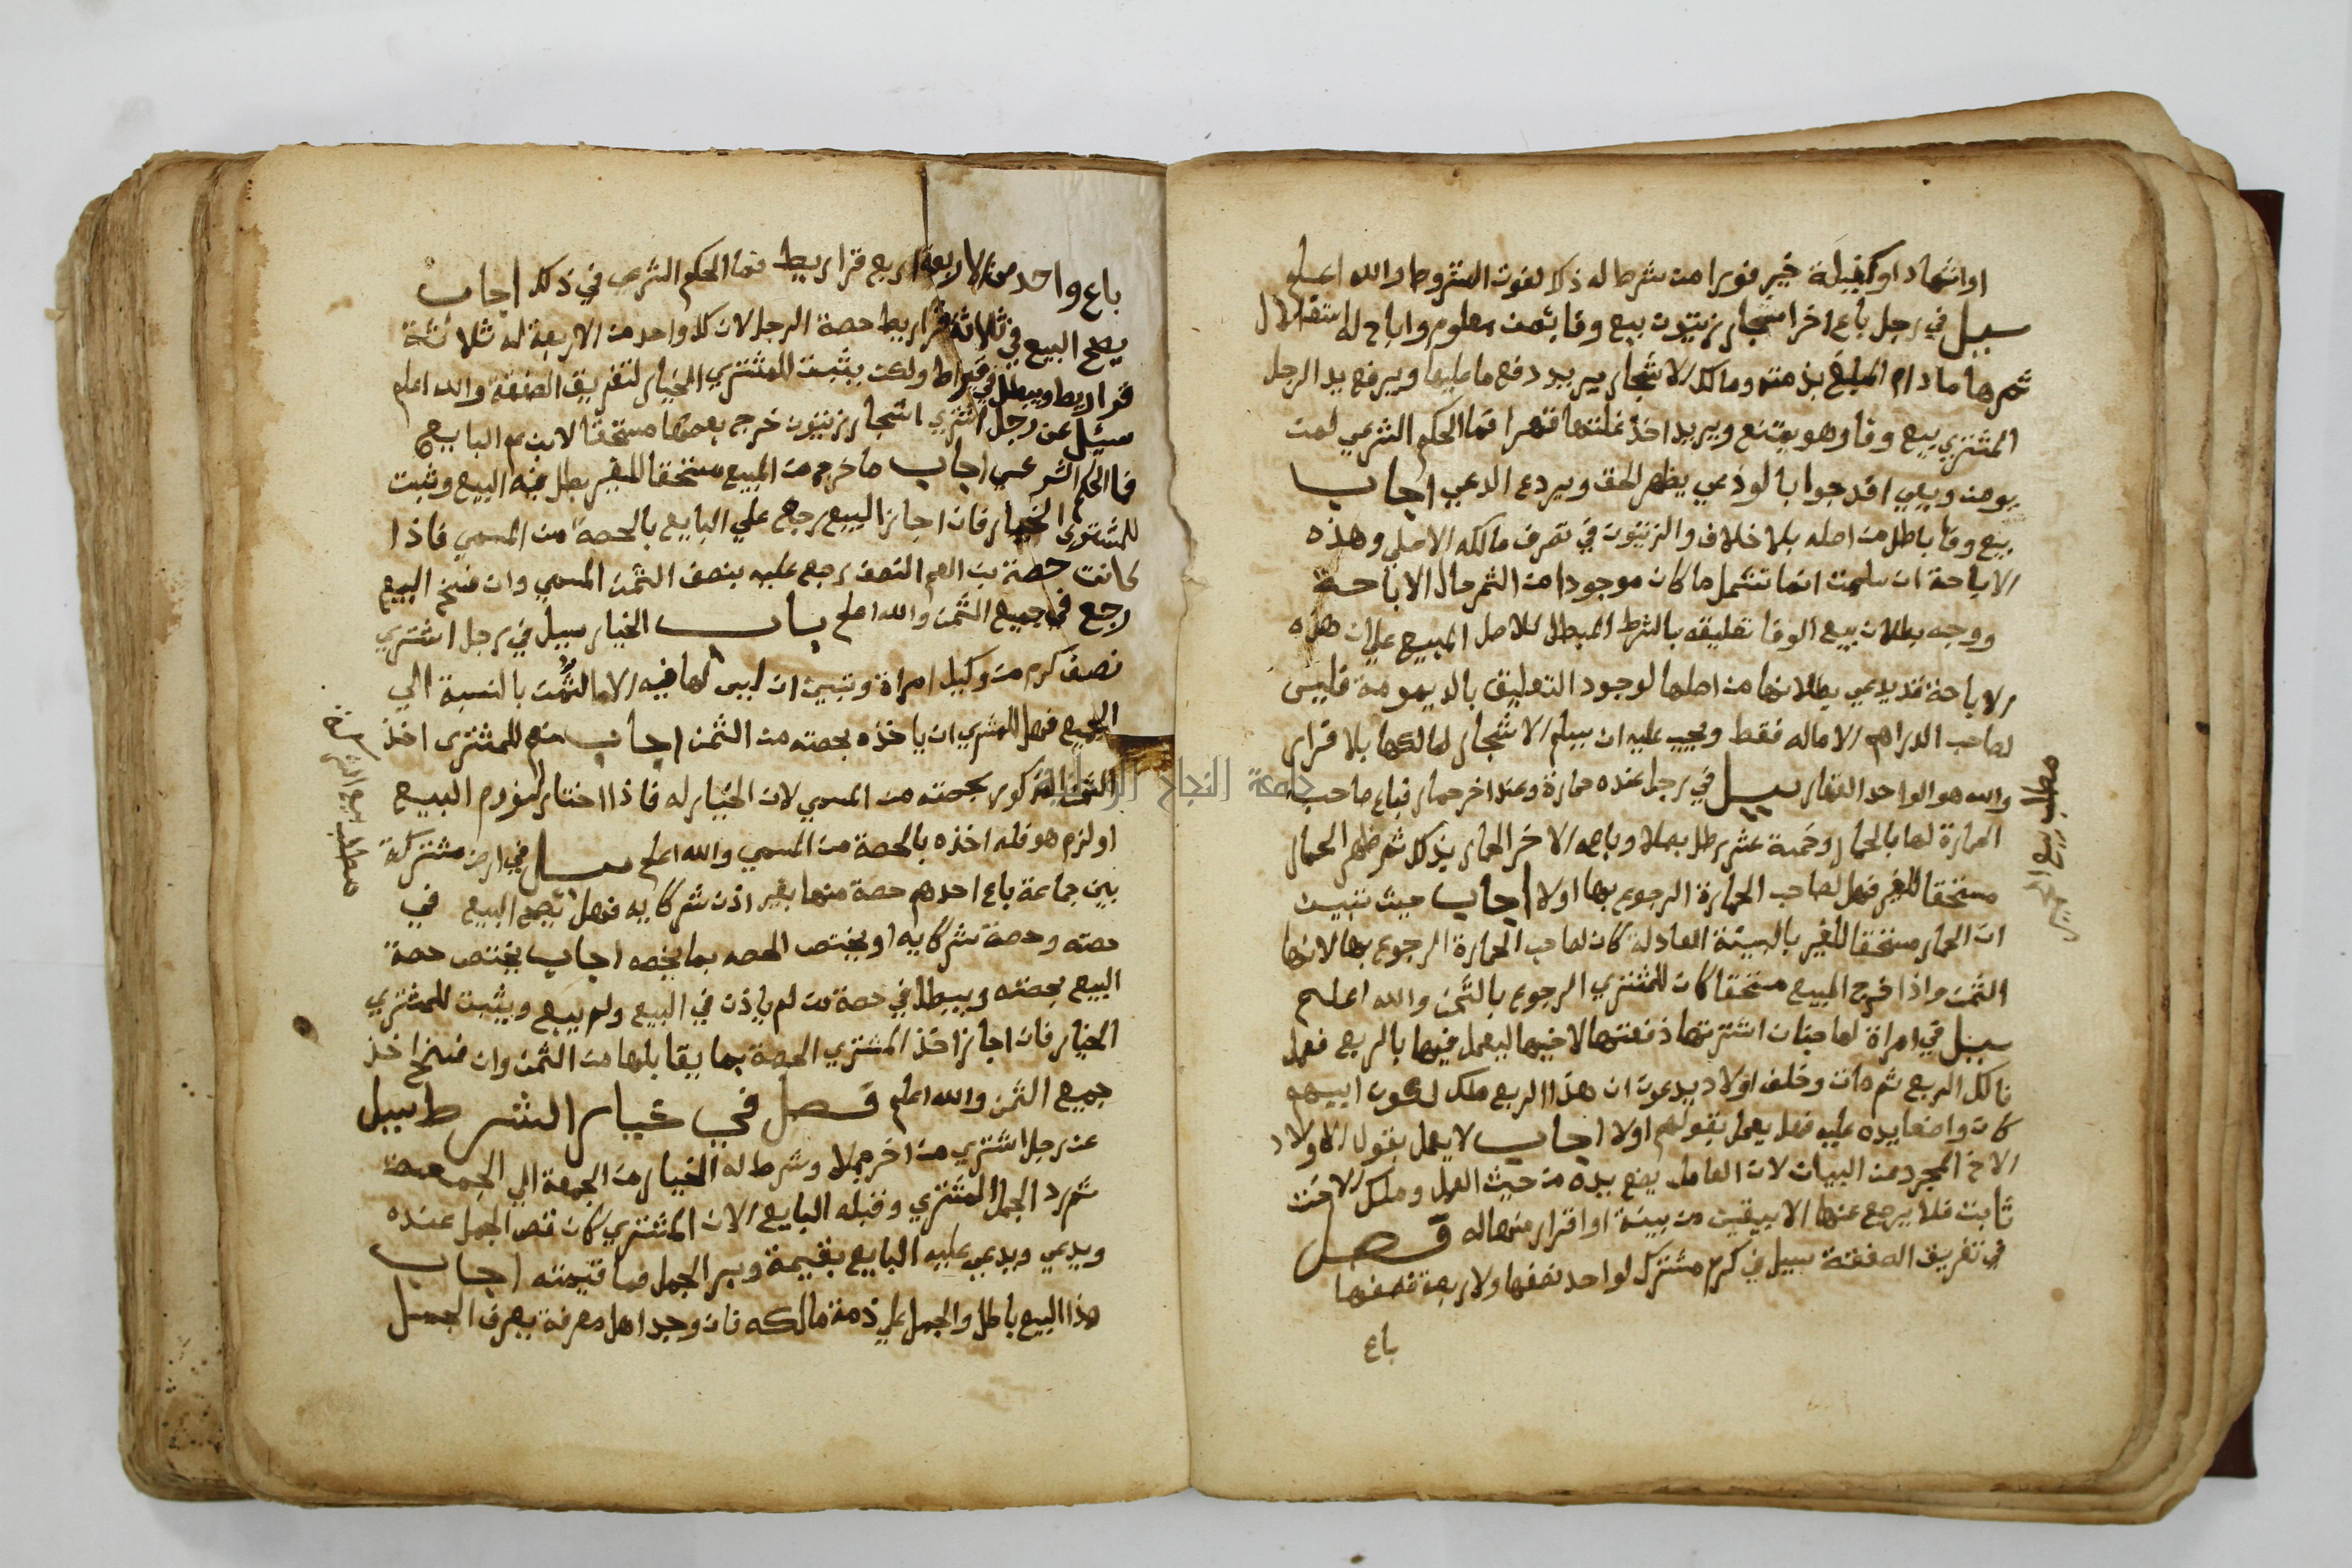 او اشهاد او كفيلة خير فورا من شرط له ذلك لفوت المشروط والله اعلم
سيل في رجل باع اخر اشجار زيتون بيع وفا بثمن معلوم واباح له استغلال
ثمرها مادام المبلغ بذمته ومالك الاشجار يريد دفع ما عليها ويرفع يد الرجل
المشتري بيع وفا وهو يمتنع ويريد اخذ غلتها قهرا فما الحكم الشرعي لمن
يومن ويعي افد جوابا لوذعي يظهر الحق ويردع الدعي اجاب
بيع وفا باطل من اصله بلا خلاف والزيتون في تصرف مالكه الاصلي وهذه
الاباحة ان سلمت انما تشمل ما كان موجودا من الثمر حال الاباحة
ووجه بطلان بيع الوفا تعليقه بالشرط المبطل لاصل المبيع علي ان هذه
الاباحة قد يدعي بطلانها من اصلها لوجود التعليق بالديمومة فليس
لصاحب الدراهم الا ماله فقط ويجب عليه ان يسلم الاشجار لمالكها بلا قرار
والله هو الواحد القهار سيل في رجل عنده حمارة وعند اخر حمار فباع صاحب
الحمارة لها بالحمار وخمسة عشر رطل بصلا وباعه الاخر الحمار بذلك ثم ظهر الحمار
مستحقا للغير فهل لصاحب الحمارة الرجوع بها اولا اجاب حيث تبين
ان الحمار مستحقا للغير بالبينة العادلة كان لصاحب الحمارة الرجوع بها لانها
الثمن واذا خرج المبيع مستحقا كان للمشتري الرجوع بالثمن والله اعلم
سيل في امراة لها جنان اشترتها دفعتها لاخيها ليعمل فيها بالربع فعمل
فاكل الربع ثم مات وخلف اولاد يدعون ان هذا الربع ملك لكون ابيهم
كان واضعا يده عليه فهل يعمل بقولهم اولا اجاب لا يعمل بقول الاولاد
الاخ المجرد من البيان لان العامل يضع يده من حيث العمل وملك الاخت
ثابت فلا يرجع عنها الا بيقين من بينة او اقرار منها له فصل
في تفريق الصفقة سيل في كرم مشترك لواحد نصفها ولاربعة نصفها
باع
مطلب بيع الحمير
باع واحد من الاربعة اربع قراريط فما الحكم الشرعي في ذلك اجاب
يصح البيع في ثلاثة قراريط حصة الرجل لان كل واحد من الاربعة له ثلاثة
قراريط ويبطل في قيراط ولكن يثبت للمشتري الخيار لتفريق الصفقة والله اعلم
سيل عن رجل اشتري اشجار زيتون خرج بعضها مستحقا لابن عم البايع
فما الحكم الشرعي اجاب ما خرج من المبيع مستحقا للغير بطل فيه البيع وثبت
للمشتري الخيار فان اجاز البيع رجع علي البايع بالحصة من المسمي فاذا
كانت حصة بن العم النصف رجع عليه بنصف الثمن المسمي وان فسخ البيع
رجع في جميع الثمن والله اعلم باب الخيار سيل في رجل اشتري
نصف كرم من وكيل امراة وتبين ان ليس لها فيه الا ما الثمن بالنسبة الي
الجميع فهل للمشتري ان ياخذه بحصته من الثمن اجاب نعم للمشتري اخذ
الثمن المذكور بحصته من المسمي لان الخيار له فاذا اختار لزوم البيع
او لزم هو فله اخذه بالحصة من المسمي والله اعلم سيل في ارض مشتركة
بين جماعة باع احدهم حصة منها بغير اذن شركايه فهل يصح البيع في
حصته وحصة شركايه او يختص الحصه بما يخصه اجاب يختص حصة
البيع بحصته ويبطل في حصة من لم ياذن في البيع ولم يبع ويثبت للمشتري
الخيار فان اجاز اخذ المشتري الحصة بما يقابلها من الثمن وان فسخ اخذ
جميع الثمن والله اعلم فصل في خيار الشرط سيل
عن رجل اشتري من اخر جملا وشرط له الخيار من الجمعة الي الجمعة
ثم رد الجمل المشتري وقبله البايع الان المشتري كان قص الجمل عنده
ويدعي ويدعي عليه البايع بقيمة وبر الجمل فما قيمته اجاب
هذا البيع باطل والجمل علي ذمة مالكه فان وجد اهل معرفة يعرف الجمل
مطلب بيع المشترك